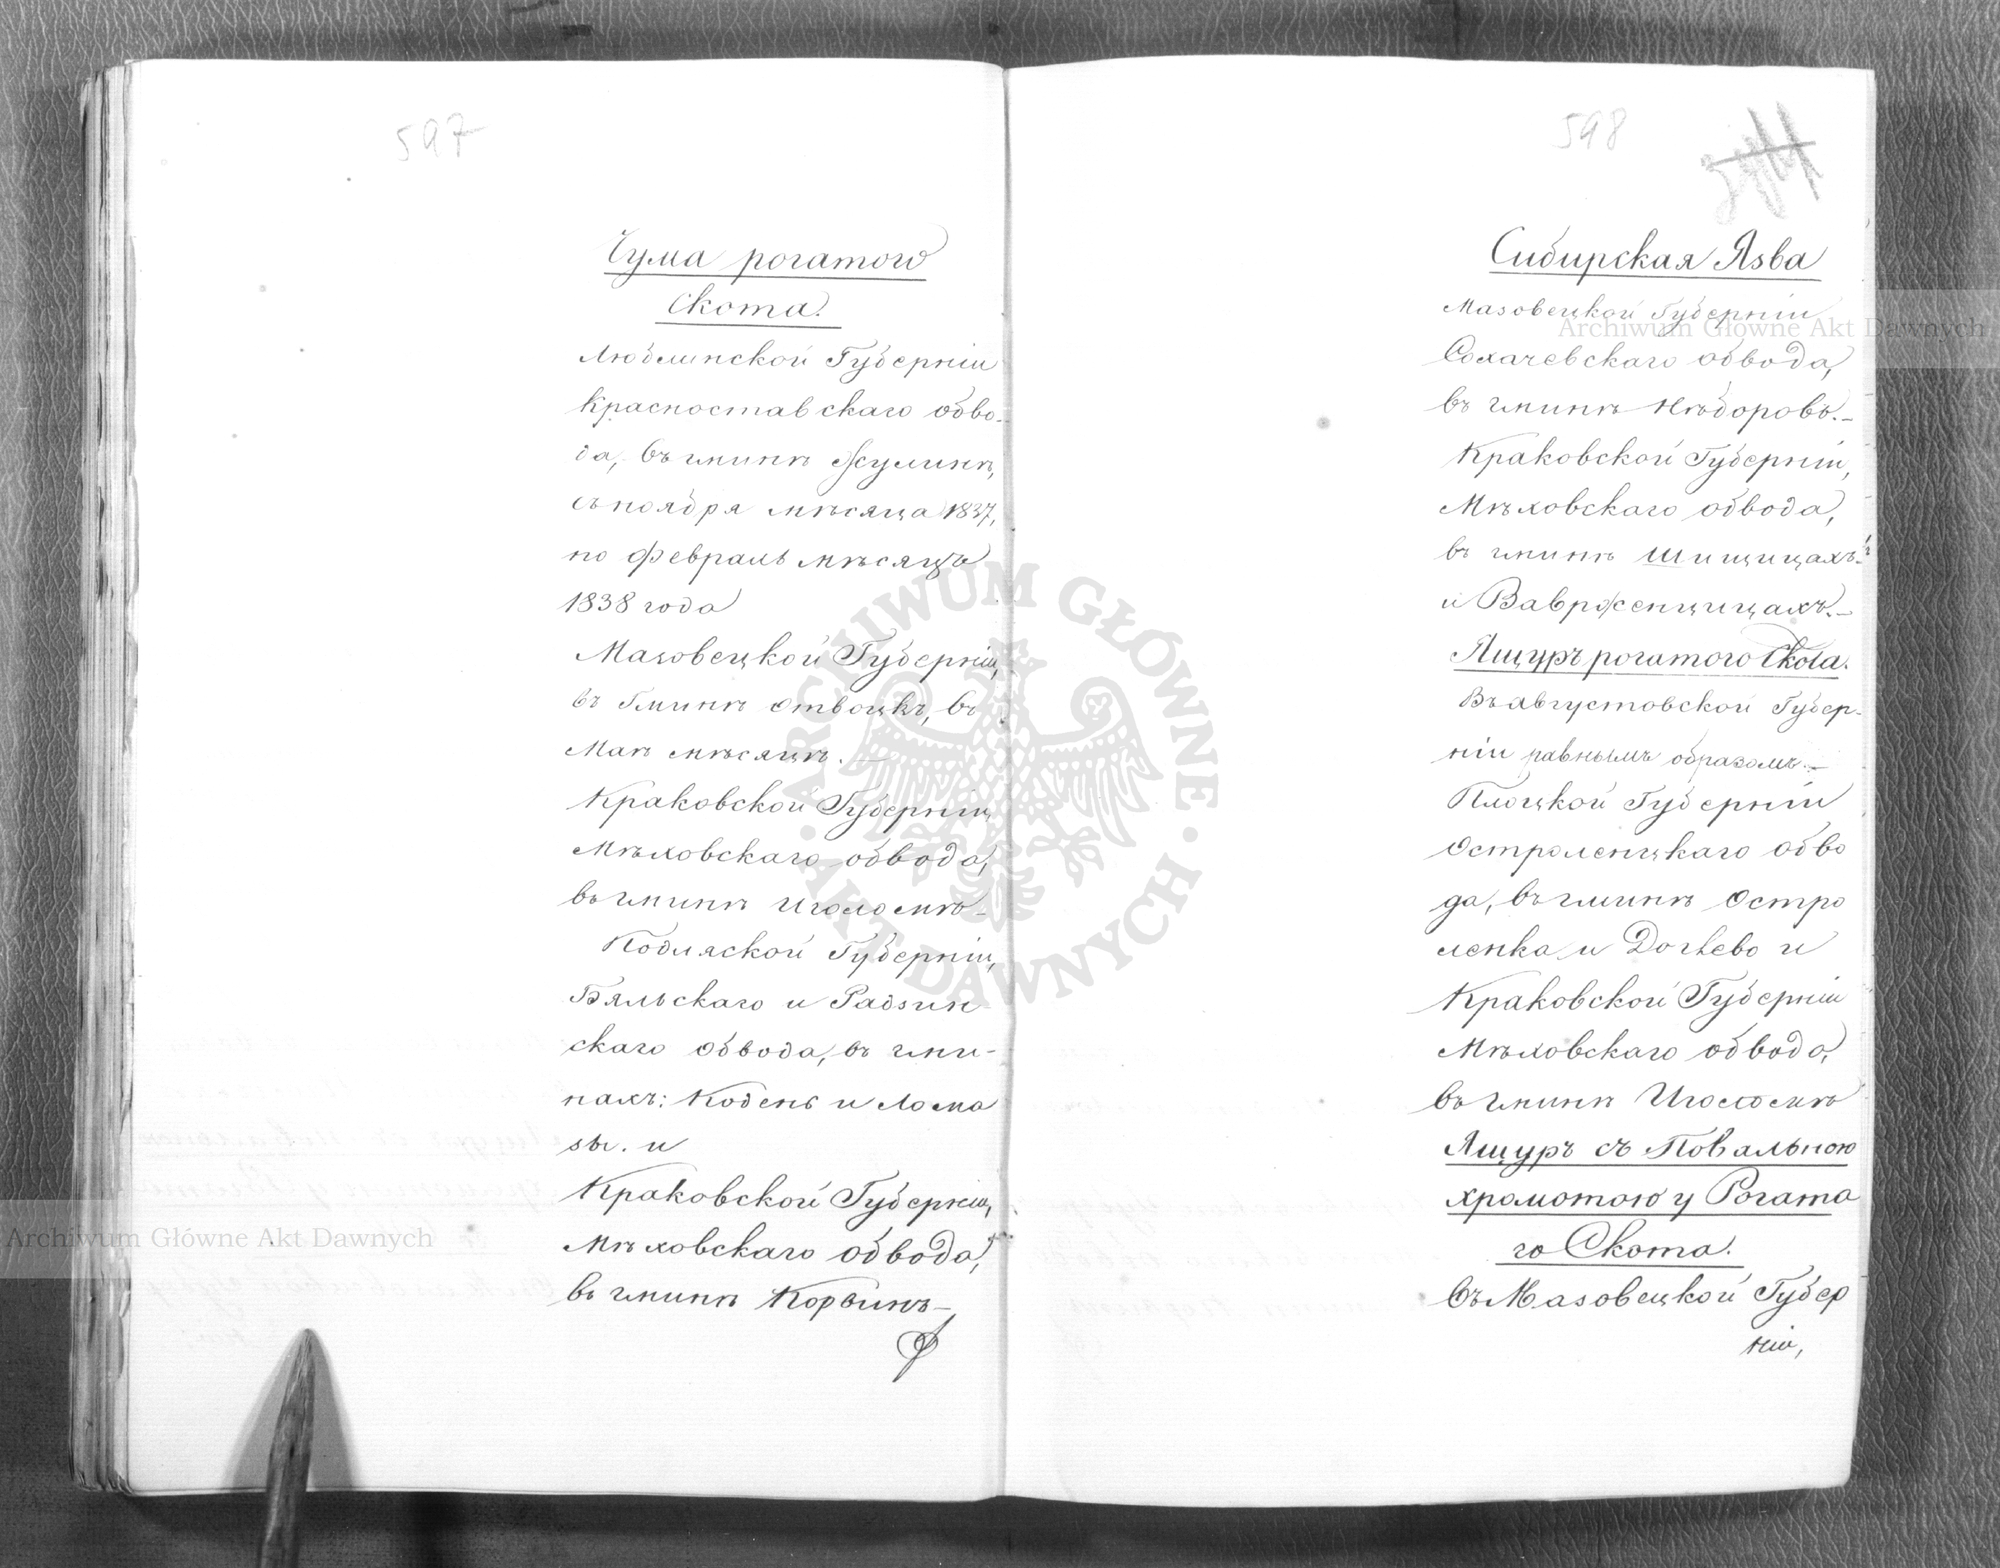 597
Чума рогатого
Скота.
Люблинской Губерніи
Красноставскаго обво-
да, въ гминѣ Жулинѣ,
съ ноября мѣсяца 1837,
по февраль мѣсяцъ
1838 года
Мазовецкой Губерніи,
въ Гминѣ Отвоцкъ, въ
Маѣ мѣсяцѣ. —
Краковской Губерніи,
Мѣховскаго обвода,
въ гминѣ Иголомѣ—
Подляской Губерніи,
Бяльскаго и Радзин-
скаго обвода, въ гми-
нахъ: Кодень и Лома
зы. и
Краковской Губерніи,
Мѣховскаго обвода,
въ гминѣ Корвинъ—
598
Сибирская Язва
Мазовецкой Губерніи
Сохачевскаго обвода,
въ гминѣ Нѣборовъ.—
Краковской Губерніи,
Мѣховскаго обвода,
въ гминѣ Шищицахъ
и Вавржен҃цицахъ.—
Ящуръ рогатого Скота.
Въ августовской Губер-
ніи равнымъ образомъ.—
Плоцкой Губерніи
Остроленцкаго обво
да, въ гминѣ Остро
ленка и и
Краковской Губерніи
Мѣховскаго обвода,
въ гминѣ Иголомѣ
Ящуръ съ Повальною
хромотою у Рогата
го Скота.
въ Мазовецкой Губер
ніи,
Archiwum Główne Akt Dawnych
Archiwum Główne Akt Dawnych
ARCHIWUM GŁÓWNE
AKT DAWNYCH